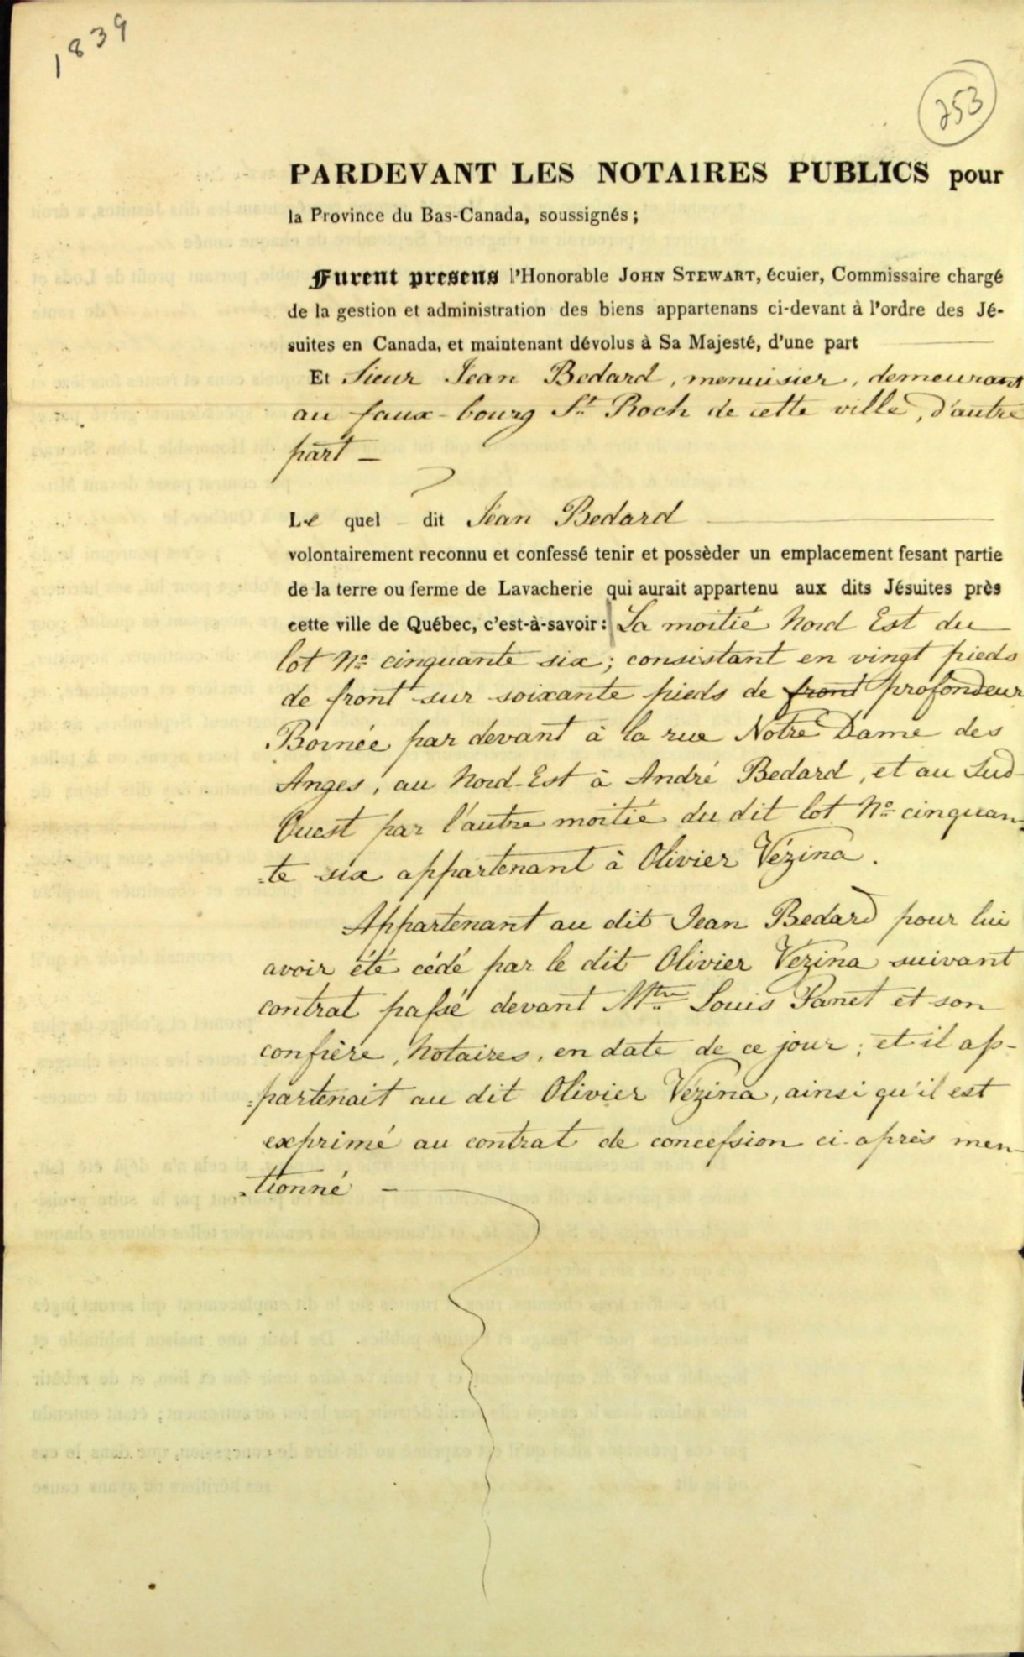 1839
253
PARDEVANT LES NOTAIRES PUBLICS pour
la Province du Bas-Canada, soussignés;
Furent presens l'Honorable JOHN STEWART, écuier, Commissaire chargé
de la gestion et administration des biens appartenans ci-devant à l'ordre des Jé-
suites en Canada, et maintenant dévolus à Sa Majesté, d'une part
Et Sieur Jean Bedard, menuisier, demeurant
au faux-bourg St. Roch de cette ville, d'autre
part —
Le quel dit Jean Bedard
volontairement reconnu et confessé tenir et possèder un emplacement fesant partie
de la terre ou ferme de Lavacherie qui aurait appartenu aux dits Jésuites près
cette ville de Québec, c'est-à-savoir: La moitié Nord Est du
lot No. cinquante six; consistant en vingt pieds
de front sur soixante pieds de front profondeur
Bornée par devant à la rue Notre Dame des
Anges, au Nord-Est à André Bedard, et au Sud-
Ouest par l'autre moitié du dit lot No. cinquan=
=te six appartenant à Olivier Vézina.
Appartenant au dit Jean Bedard pour lui
avoir été cédé par le dit Olivier Vézina suivant
contrat passé devant Mtre. Louis Panet et son
confrère, Notaires, en date de ce jour; et il ap-
=partenait au dit Olivier Vézina, ainsi qu'il est
exprimé au contrat de concession ci-après men-
=tionné —